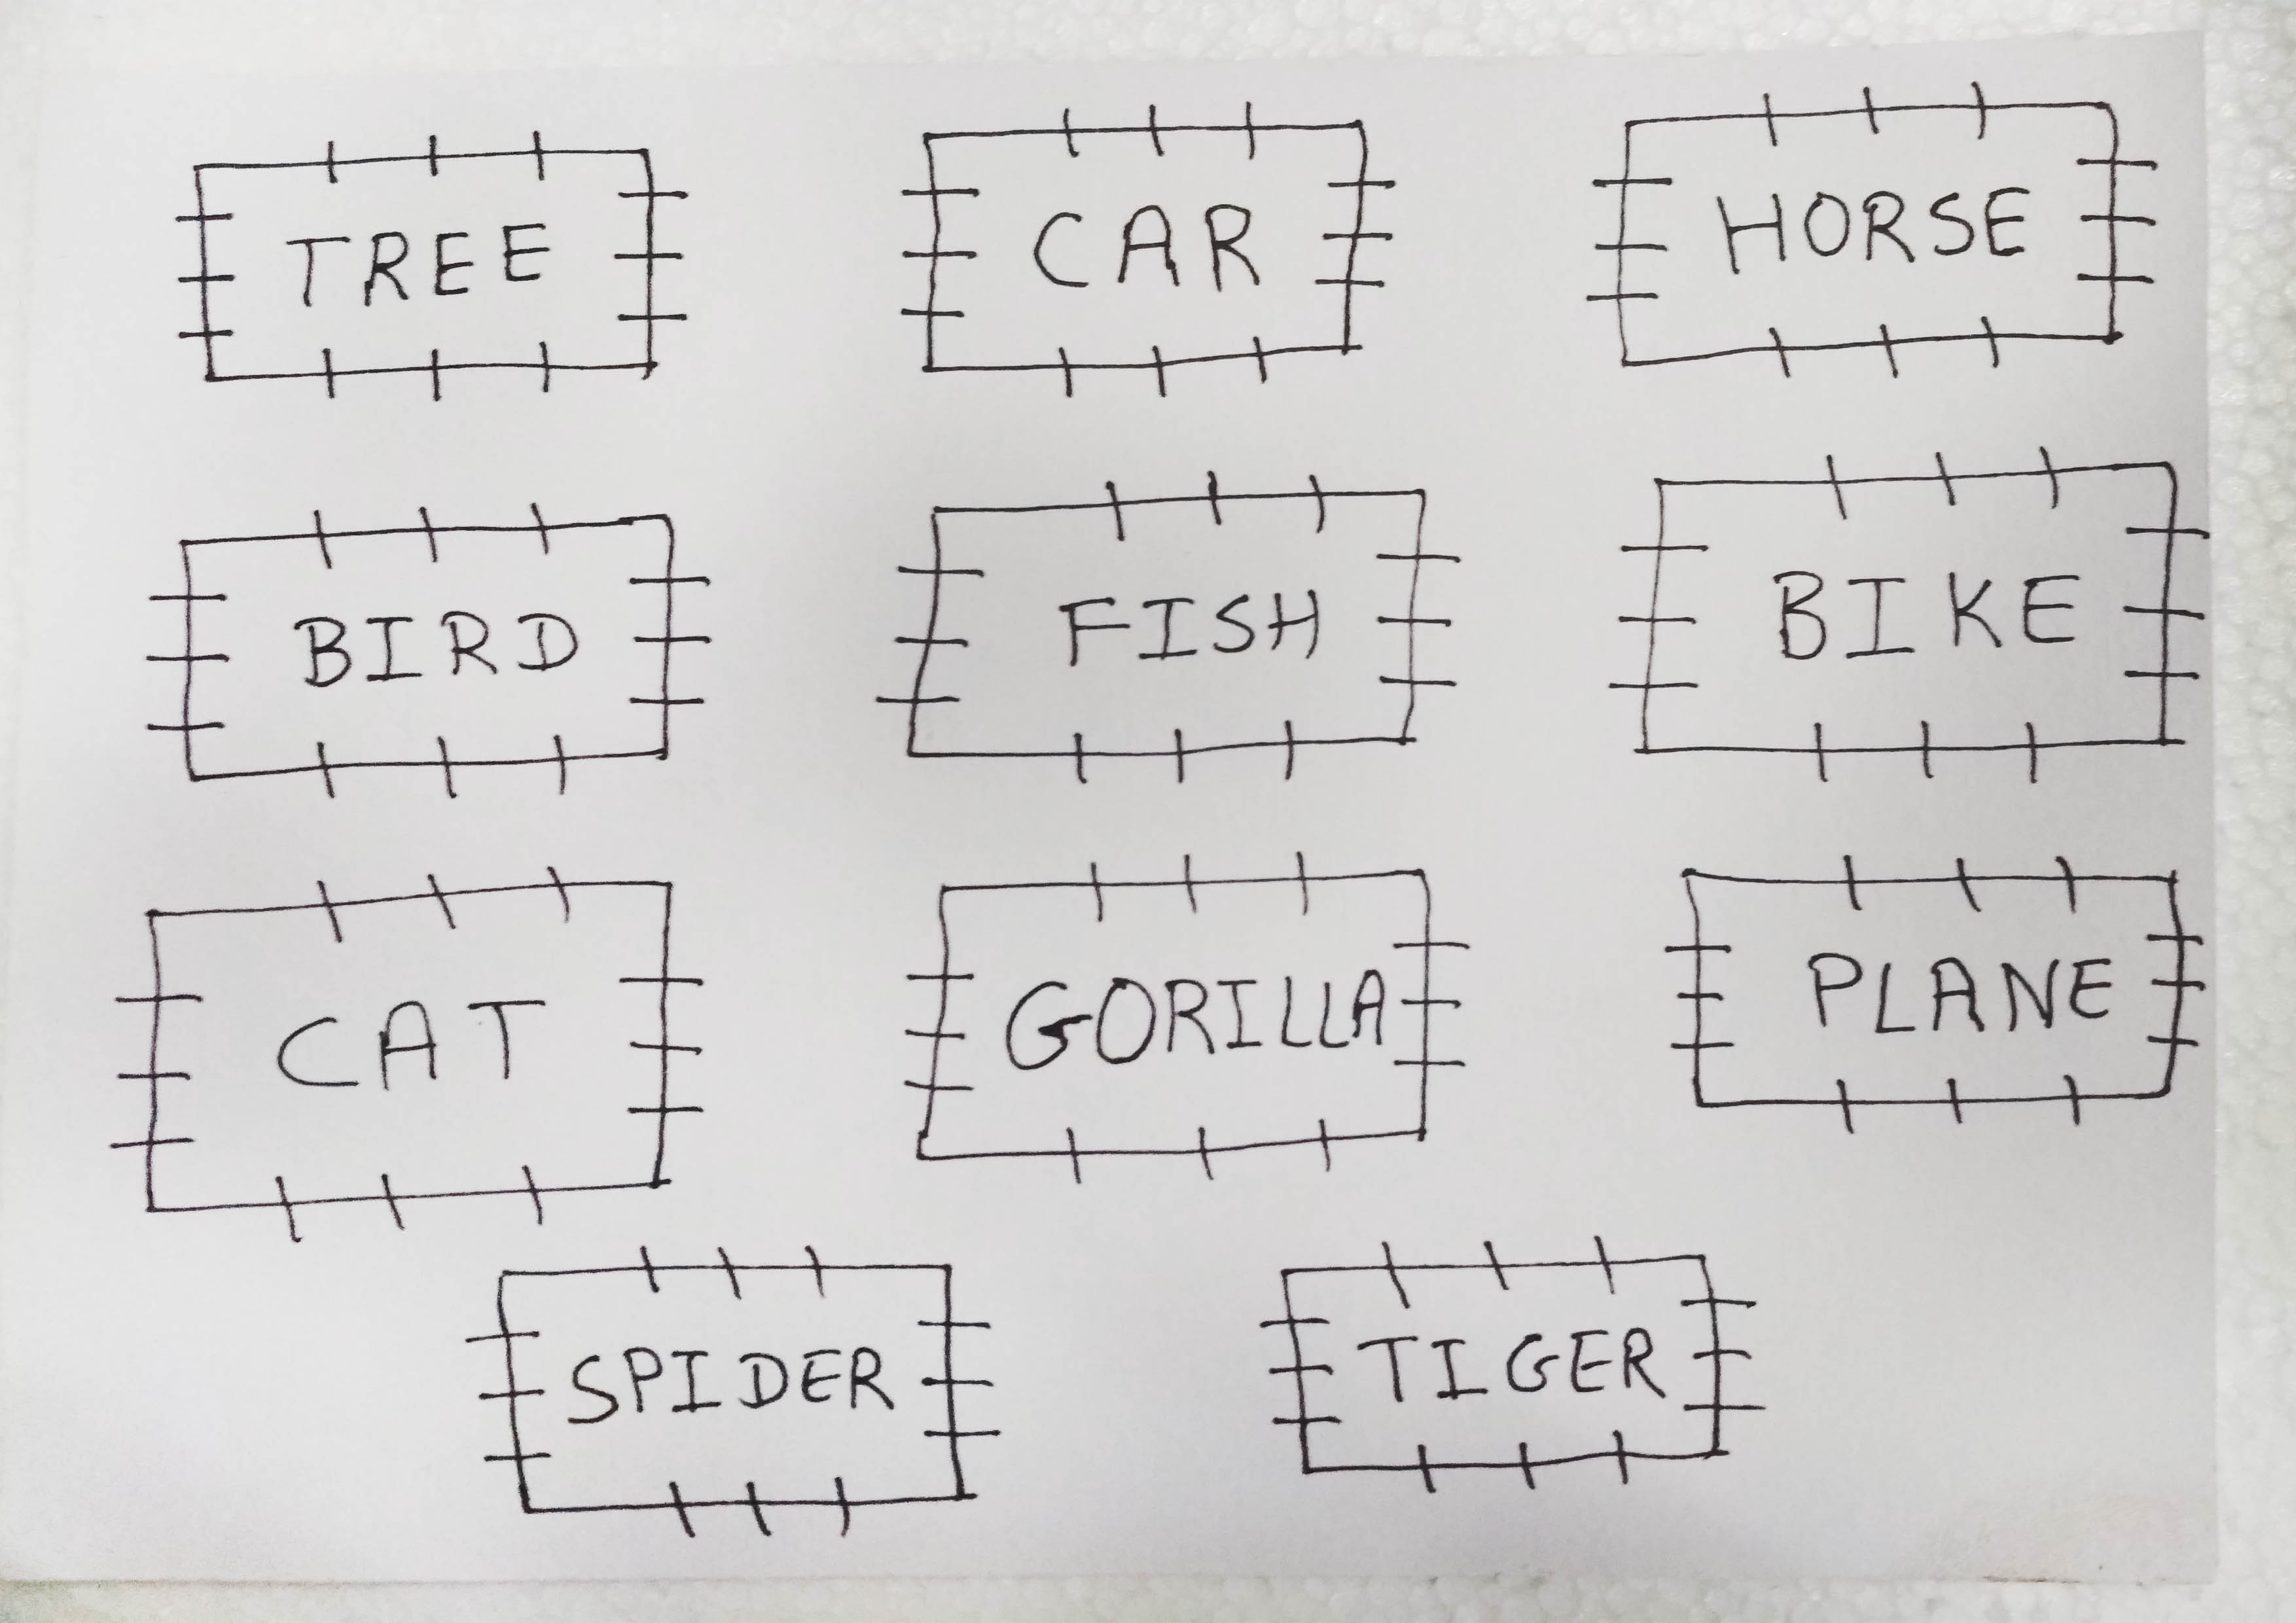 TREE CAR HORSE
BIRD FISH BIKE
CAT GORILLA PLANE
SPIDER TIGER